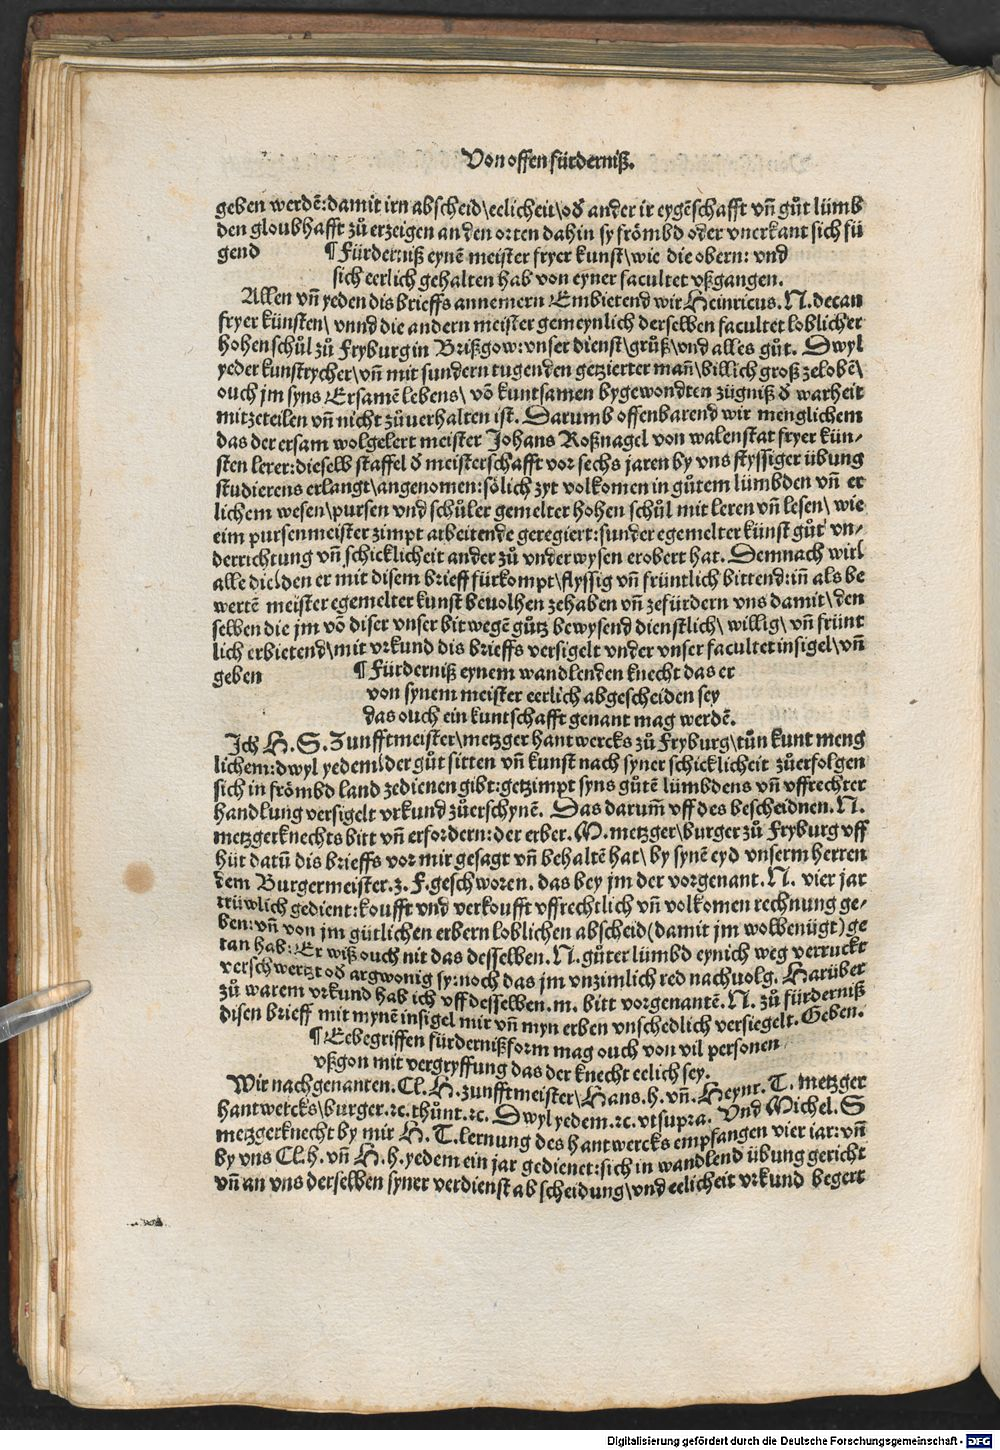 Von offen fürderniß.
geben werdē:damit irn abscheid\eelicheit\od̄ ander ir eygēschafft vn̄ gůt lümb
den gloubhafft zů erzeigen an den orten dahin sy frömbd oder vnerkant sich fü
gend ¶ Fürderniß eynē meister fryer kunst\wie die obern: vnd
sich eerlich gehalten hab von eyner facultet vßgangen.
Allen vn̄ yeden dis brieffs annemern Embietend wir Heinricus. N. decan
fryer künsten\ vnnd die andern meister gemeynlich derselben facultet loblicher
hohen schůl zů Fryburg in Brißgow:vnser dienst\grůß\vnd alles gůt. Dwyl
yeder kunstrycher\vn̄ mit sundern tugenden getzierter man̄\billich groß zelobē\
ouch jm syns Ersamē lebens\ vō kuntsamen bygewondten zügniß d̄ warheit
mitzeteilen vn̄ nicht zůuerhalten ist. Darumb offenbarend wir menglichem
das der ersam wolgelert meister Johans Roßnagel von walenstat fryer kün-
sten lerer:dieselb staffel d̄ meisterschafft vor sechs jaren by vns flyssiger übung
studierens erlangt\angenomen:sölich zyt volkomen in gůtem lümbden vn̄ er
lichem wesen\pursen vnd schůler gemelter hohen schůl mit leren vn̄ lesen\ wie
eim pursenmeister zimpt arbeitende geregiert:sunder egemelter künst gůt vn-
derrichtung vn̄ schicklicheit ander zů vnderwysen erobert hat. Demnach wir\
alle die\den er mit disem brieff fürkompt\flyssig vn̄ früntlich bittend:in̄ als be
wertē meister egemelter kunst beuolhen zehaben vn̄ zefürdern vns damit\den
selben die jm vō diser vnser bit wegē gůtz bewysend dienstlich\ willig\ vn̄ frünt
lich erbietend\mit vrkund dis brieffs versigelt vnder vnser facultet insigel\vn̄
geben ¶ Fürderniß eynem wandlenden knecht das er
von synem meister eerlich abgescheiden sey
das ouch ein kuntschafft genant mag werdē.
Ich H. S. Zunfftmeister\metzger hantwercks zů Fryburg\tůn kunt meng
lichem:dwyl yedem\der gůt sitten vn̄ kunst nach syner schicklicheit zůerfolgen
sich in frömbd land zedienen gibt:getzimpt syns gůtē lümbdens vn̄ vffrechter
handlung versigelt vrkund zůerschynē. Das darum̄ vff des bescheidnen. N.
metzgerknechts bitt vn̄ erfordern:der erber. M. metzger\burger zů Fryburg vff
hüt datū dis brieffs vor mir gesagt vn̄ behaltē hat\ by synē eyd vnserm herren
dem Burgermeister. z. F. geschworen. das bey jm der vorgenant. N. vier jar
trüwlich gedient:koufft vnd verkoufft vffrechtlich vn̄ volkomen rechnung ge-
ben:vn̄ von jm gütlichen erbern loblichen abscheid(damit jm wolbenügt)ge
tan hab: Er wiß ouch nit das desselben. N. gůter lümbd eynich weg verruckt
verschwertzt od̄ argwonig sy:noch das jm vnzimlich red nachuolg. Harüber
zů warem vrkund hab ich vff desselben. m. bitt vorgenantē. N. zů fürderniß
disen brieff mit mynē insigel mir vn̄ myn erben vnschedlich versiegelt. Geben.
¶ Eebegriffen fürdernißform mag ouch von vil personen
vßgon mit vergryffung das der knecht eelich sey.
Wir nachgenanten. Cl. H. zunfftmeister\Hans. h. vn̄. Heynr. T. metzger
hantwercks\burger.ꝛc.thůnt.ꝛc. Dwyl yedem.ꝛc. vtsupra. Vnd Michel. S
metzgerknecht by mir H. T. lernung des hantwercks empfangen vier iar:vn̄
by vns Cl. h. vn̄ H. h. yedem ein jar gedienet:sich in wandlend übung gericht
vn̄ an vns derselben syner verdienst abscheidung\vnd eelicheit vrkund begert
Digitalisierung gefördert durch die Deutsche Forschungsgemeinschaft - DFG